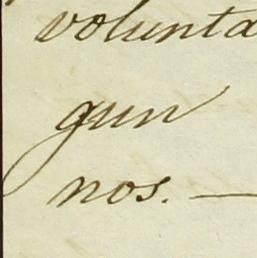 volunta
gun
nos. —